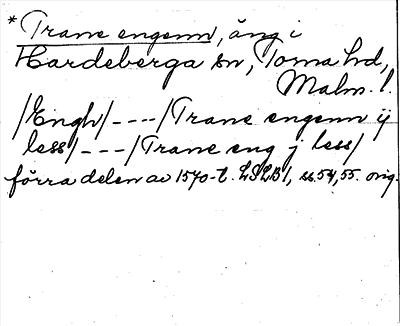 *Trane engenn, äng i
Hardeberga sn, Torna hd,
Malm. l.
/Engh/----/Trane engenn ij
less/---/Trane eng j less/
förra delen av 1570-t. LSLB 1, ss. 54, 55. orig.